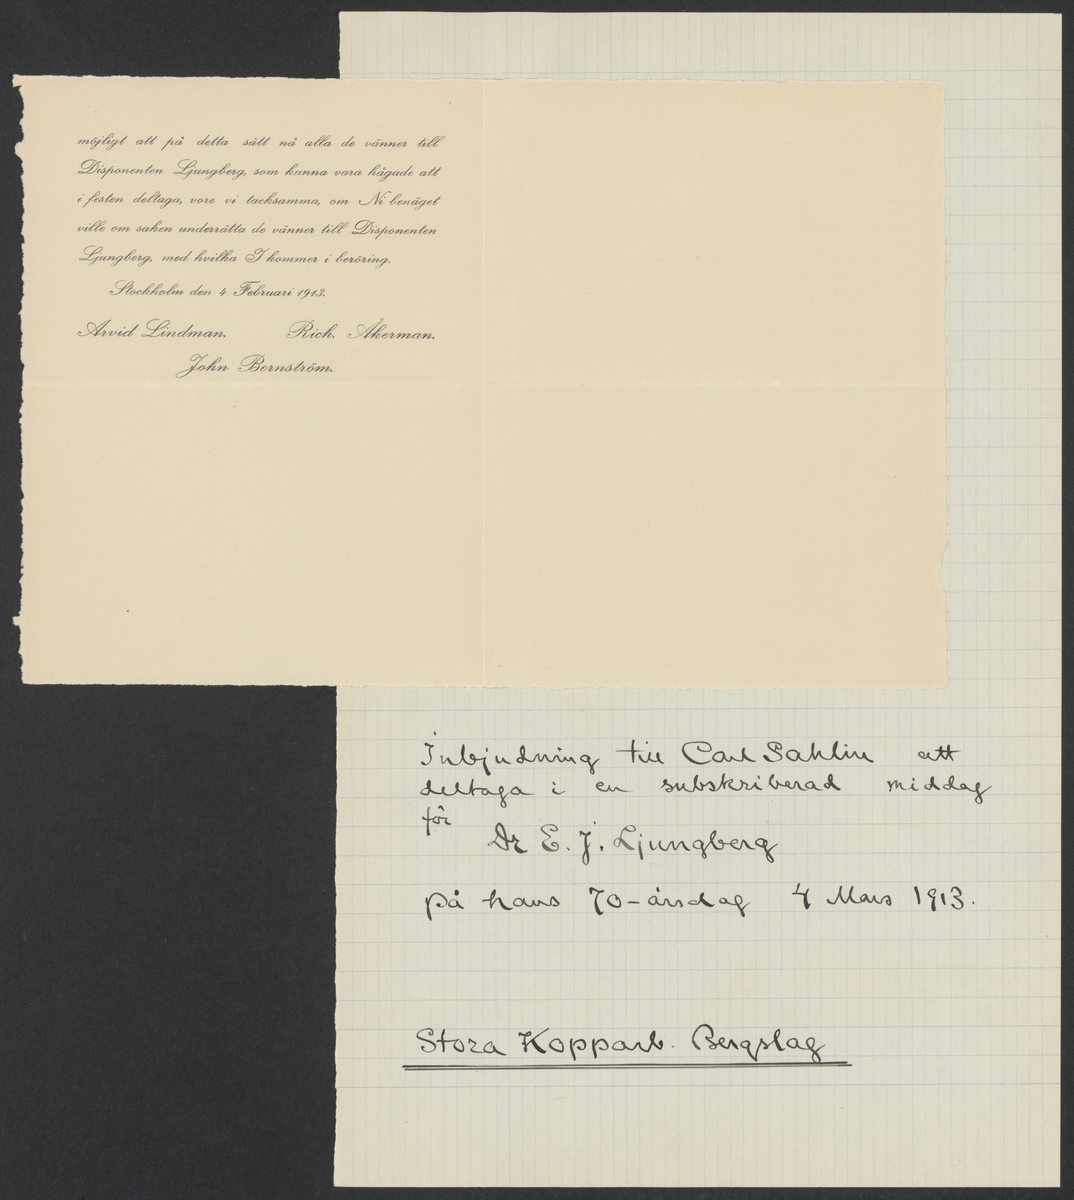 möjligt att på detta sätt nå alla de vänner till
Disponenten Ljungberg, som kunna vara hågade att
i festen deltaga, vore vi tacksamma, om Ni benäget
ville om saken underrätta de vänner till Disponenten
Ljungberg, med hvilka I kommer i beröring.
Stockholm den 4 Februari 1913.
Arvid Lindman. Rich. Åkerman.
John Bernström.
Inbjudning till Carl Sahlin att
deltaga i en subskriberad middag
för
Dr E. J. Ljungberg
på hans 70-årsdag 4 Mars 1913.
Stora Kopparb. Bergslag